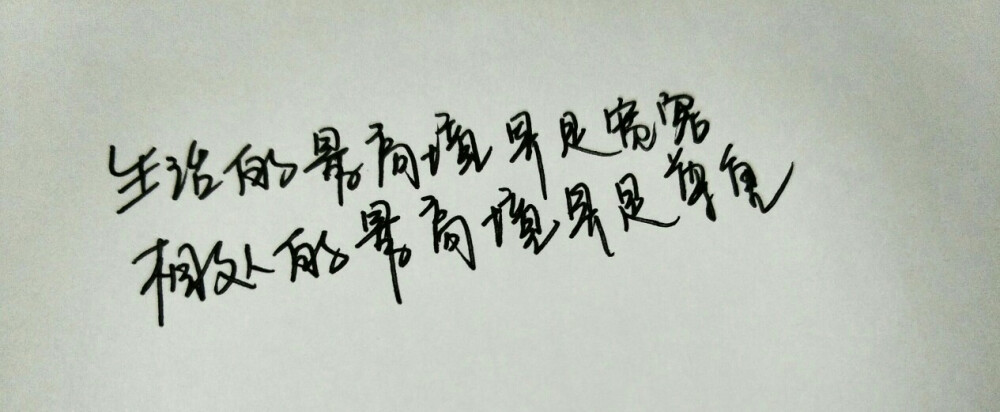 生活的最高境界是宽容
相处的最高境界是尊重